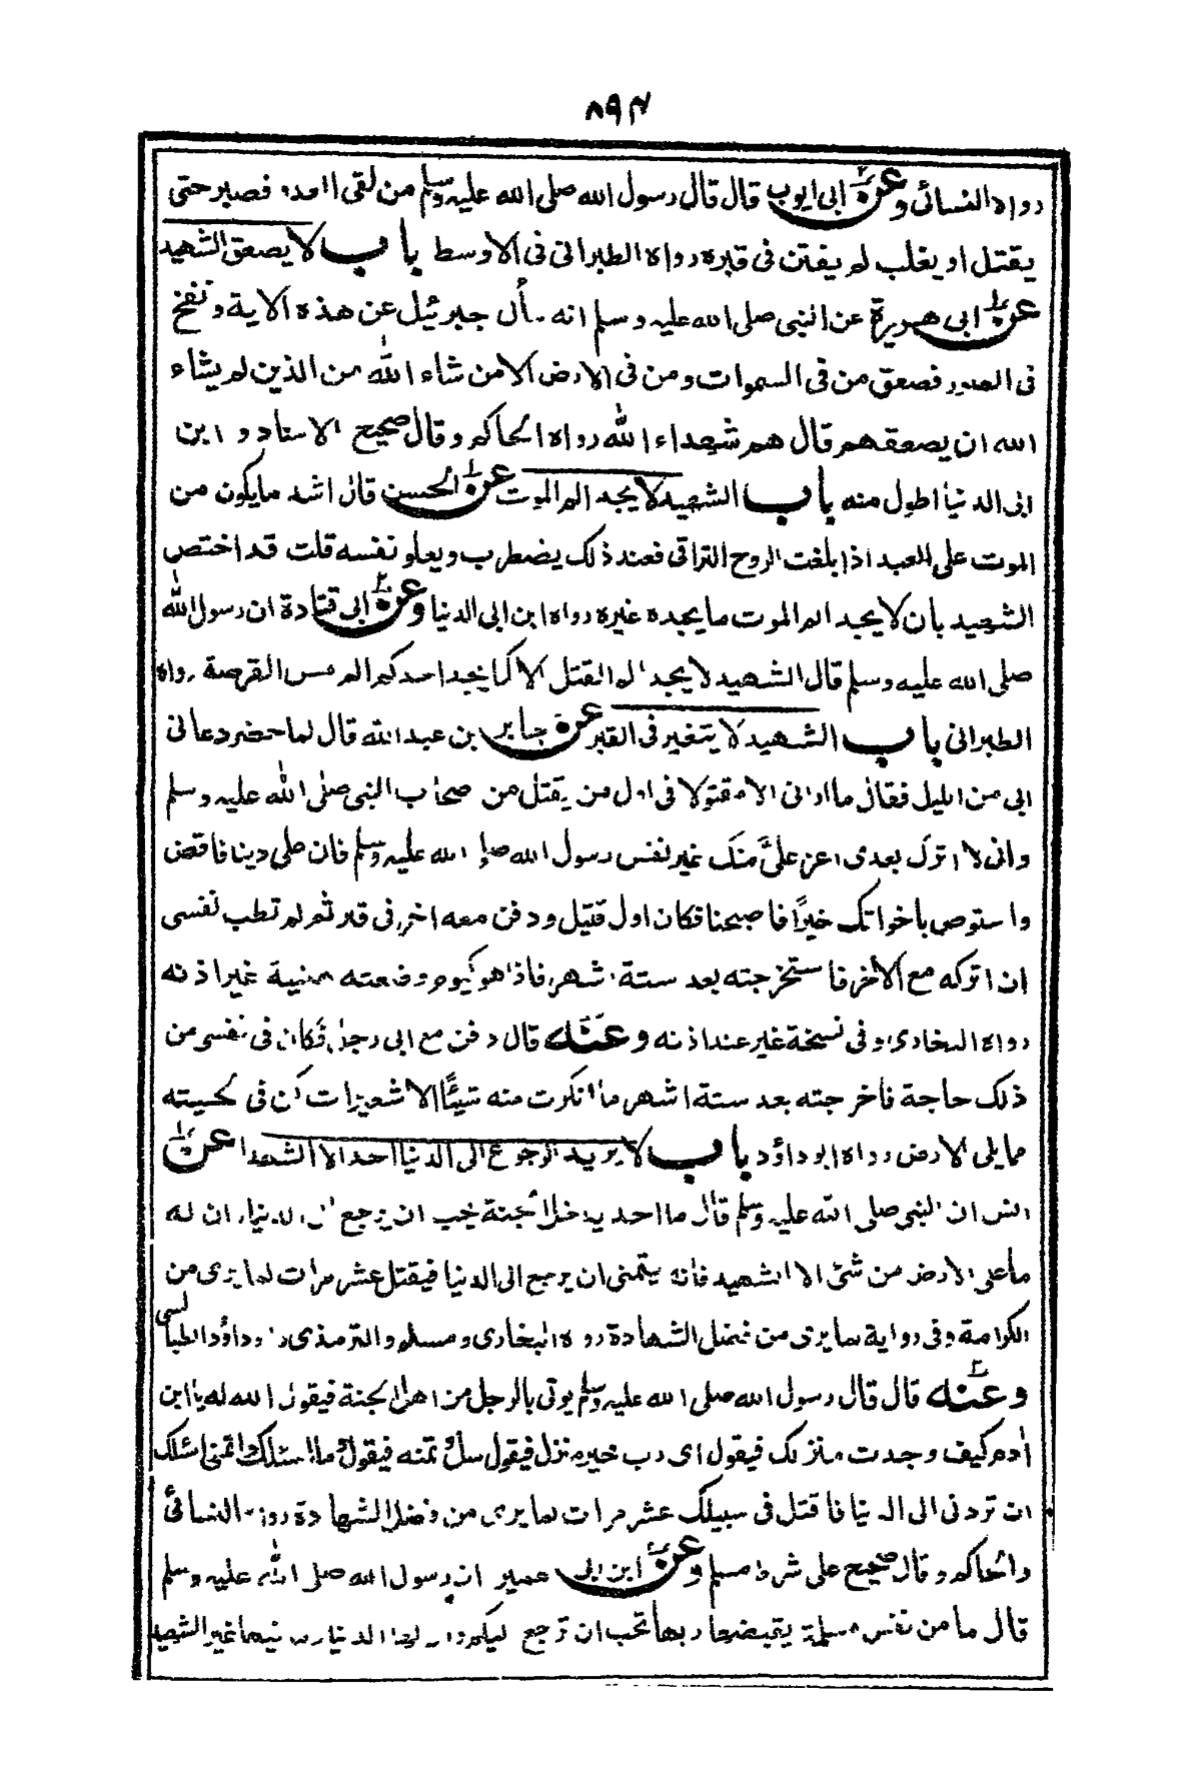 ٨٩٣
رواه النسائى وعن ابى ايوب قال قال رسول الله صلى الله عليه وسلم من لقى العدو فصبر حتى
يقتل او يغلب لم يفتن فى قبره رواه الطبرانى فى الاوسط باب لا يصعق الشهيد
عن ابى هريرة عن النبى صلى الله عليه وسلم انه سأل جبرئيل عن هذه الاية ونفخ
فى الصور فصعق من فى السموات ومن فى الارض الا من شاء الله من الذين لم يشاء
الله ان يصعقهم قال هم شهداء الله رواه الحاكم وقال صحيح الاسناد و ابن
ابى الدنيا اطول منه باب الشهيد لا يجد الم الموت عن الحسن قال اشد ما يكون من
الموت على العبد اذا بلغت الروح التراقى فعند ذلك يضطرب ويعلو نفسه قلت قد اختص
الشهيد بان لا يجد الم الموت ما يجده غيره رواه ابن ابى الدنيا وعن ابى قتادة ان رسول الله
صلى الله عليه وسلم قال الشهيد لا يجد الم القتل الا كما يجد احدكم الم مس القرصة رواه
الطبرانى باب الشهيد لا يتغير فى القبر عن جابر بن عبد الله قال لما حضر دعانى
ابى من الليل فقال ما ارانى الا مقتولا فى اول من يقتل من صحاب النبى صلى الله عليه وسلم
وانى لا اترك بعدى اعز على منك غير نفس رسول الله صلى الله عليه وسلم فان على دينا فاقض
واستوص باخواتك خيرًا فاصبحنا فكان اول قتيل ودفن معه اخر فى قبر ثم لم تطب نفسى
ان اتركه مع الاخر فاستخرجته بعد ستة اشهر فاذا هو كيوم وضعته هنية غير اذنه
رواه البخارى وفى نسخة غير عند اذنه وعنه قال دفن مع ابى رجل فكان فى نفسى من
ذلك حاجة فاخرجته بعد ستة اشهر ما انكرت منه شيئًا الا شعيرات كن فى لحيته
مما يلى الارض رواه ابو داؤد باب لا يريد الرجوع الى الدنيا احد الا الشهدا عن
انس ان النبى صلى الله عليه وسلم قال ما احد يدخل الجنة يحب ان يرجع الى الدنيا وان له
ما على الارض من شئ الا الشهيد فانه يتمنى ان يرجع الى الدنيا فيقتل عشر مرات لما يرى من
الكرامة وفى رواية لما يرى من فضل الشهادة رواه البخارى ومسلم والترمذى و داؤد الطيالسى
وعنه قال قال رسول الله صلى الله عليه وسلم يوتى بالرجل من اهل الجنة فيقول الله له يا ابن
ادم كيف وجدت منزلك فيقول اى رب خير منزل فيقول سل و تمنه فيقول ما اسئلك واتمنى اسئلك
ان تردنى الى الدنيا فاقتل فى سبيلك عشر مرات لما يرى من فضل الشهادة رواه النسائى
والحاكم وقال صحيح على شرط مسلم وعن ابن ابى عمير ان رسول الله صلى الله عليه وسلم
قال ما من نفس مسلمة يقبضها ربها تحب ان ترجع ليكم لها الدنيا وما فيها غير الشهيد